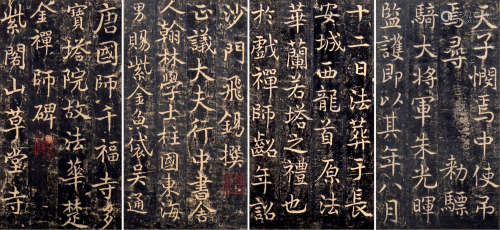 唐國師千福寺多
寶塔院故法華楚
金禪師碑
紫閣山草堂寺
沙門飛錫撰
正議大夫行中書舍
人翰林學士柱國東海
男賜紫金魚袋吳通
天子憫焉中使弔
焉尋 勅驃
騎大將軍朱光暉
監護即以其年八月
十二日法葬于長
安城西龍首原法
華蘭若塔之禮也
於戲禪師齠年詔